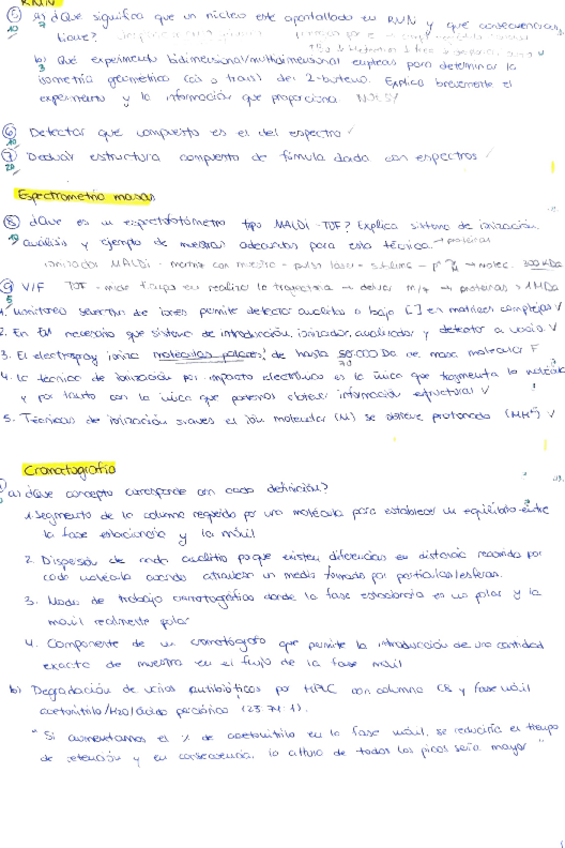 RMN
⑤ a) ¿Que significa que un núcleo esté apantallado en RMN y qué consecuencias
10 7 tiene?
b) Qué experimento bidimensional/multidimensional emplearías para determinar la
3 isomería geométrica (cis o trans) del 2-buteno. Explica brevemente el
experimento y la información que proporciona NOESY
⑥ Detectar que compuesto es el del espectro ✓
10
⑦ Deducir estructura compuesto de fórmula dada con espectros ✓
20
Espectrometría masas
⑧ ¿Que es un espectrofotómetro tipo MALDI-TOF? Explica sistema de ionización,
análisis y ejemplo de muestras adecuadas para esta técnica. → proteínas
ionizador MALDI - matriz con muestra - pulso láser - → molec. 300 kDa
⑨ V/F TOF - mide tiempo en realizar la trayectoria → m/z → proteínas > 1 MDa
5
1. monitoreo selectivo de iones permite detectar analitos a baja [ ] en matrices complejas V
2. En EM necesario que sistema de introducción, ionizador, analizador y detector a vacío. V
3. El electrospray ioniza moléculas polares, de hasta 50.000 Da de masa molecular F
70
4. La técnica de ionización por impacto electrónico es la única que fragmenta la molécula
y por tanto con la única que podemos obtener información estructural V
5. Técnicas de ionización suaves el ión molecular (M) se obtiene protonado (MH⁺) V
Cromatografía
a) ¿Que concepto corresponde con cada definición?
1. Segmento de la columna requerido por una molécula para establecer un equilibrio entre
la fase estacionaria y la móvil
2. Dispersión de cada analito porque existen diferencias en distancia recorrida por
cada molécula cuando atraviesan un medio formado por partículas/esferas.
3. Modo de trabajo cromatográfico donde la fase estacionaria es no polar y la
movil realmente polar
4. Componente de un cromatógrafo que permite la introducción de una cantidad
exacta de muestra en el flujo de la fase móvil
b) Degradación de varios antibióticos por HPLC con columna C8 y fase móvil
acetonitrilo/H2O/ácido perclórico (25:74:1).
"Si aumentamos el % de acetonitrilo en la fase móvil, se reduciría el tiempo
de retención y en consecuencia, la altura de todos los picos sería mayor"